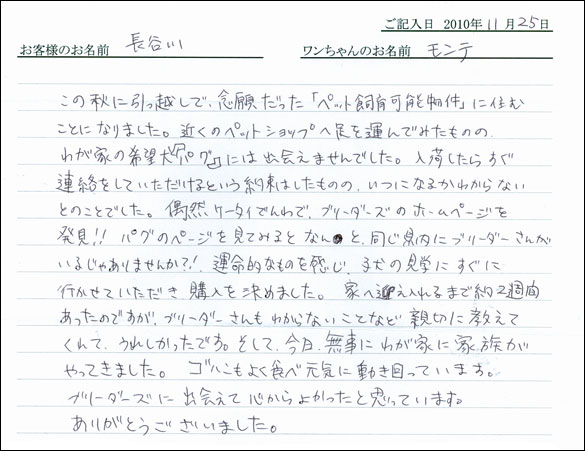 ご記入日 2010年11月25日
お客様のお名前 長谷川 ワンちゃんのお名前 モンテ
この秋に引っ越しで、念願だった「ペット飼育可能物件」に住む
ことになりました。近くのペットショップへ足を運んでみたものの、
わが家の希望犬「パグ」には出会えませんでした。入荷したらすぐ
連絡をしていただけるという約束はしたものの、いつになるかわからない
とのことでした。偶然ケータイでんわで、ブリーダーズのホームページを
発見!! パグのページを見てみるとなんと、同じ県内にブリーダーさんが
いるじゃありませんか?! 運命的なものを感じ、子犬の見学にすぐに
行かせていただき購入を決めました。家へ迎え入れるまで約2週間
あったのですが、ブリーダーさんもわからないことなど親切に教えて
くれて、うれしかったです。そして、今日、無事にわが家に家族が
やってきました。ゴハンもよく食べ元気に動き回っています。
ブリーダーズに出会えて心からよかったと思っています。
ありがとうございました。